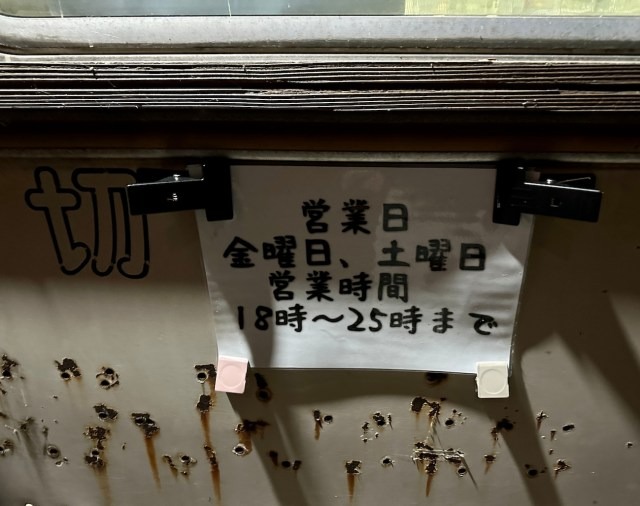 切
営業日
金曜日、土曜日
営業時間
18時〜25時まで